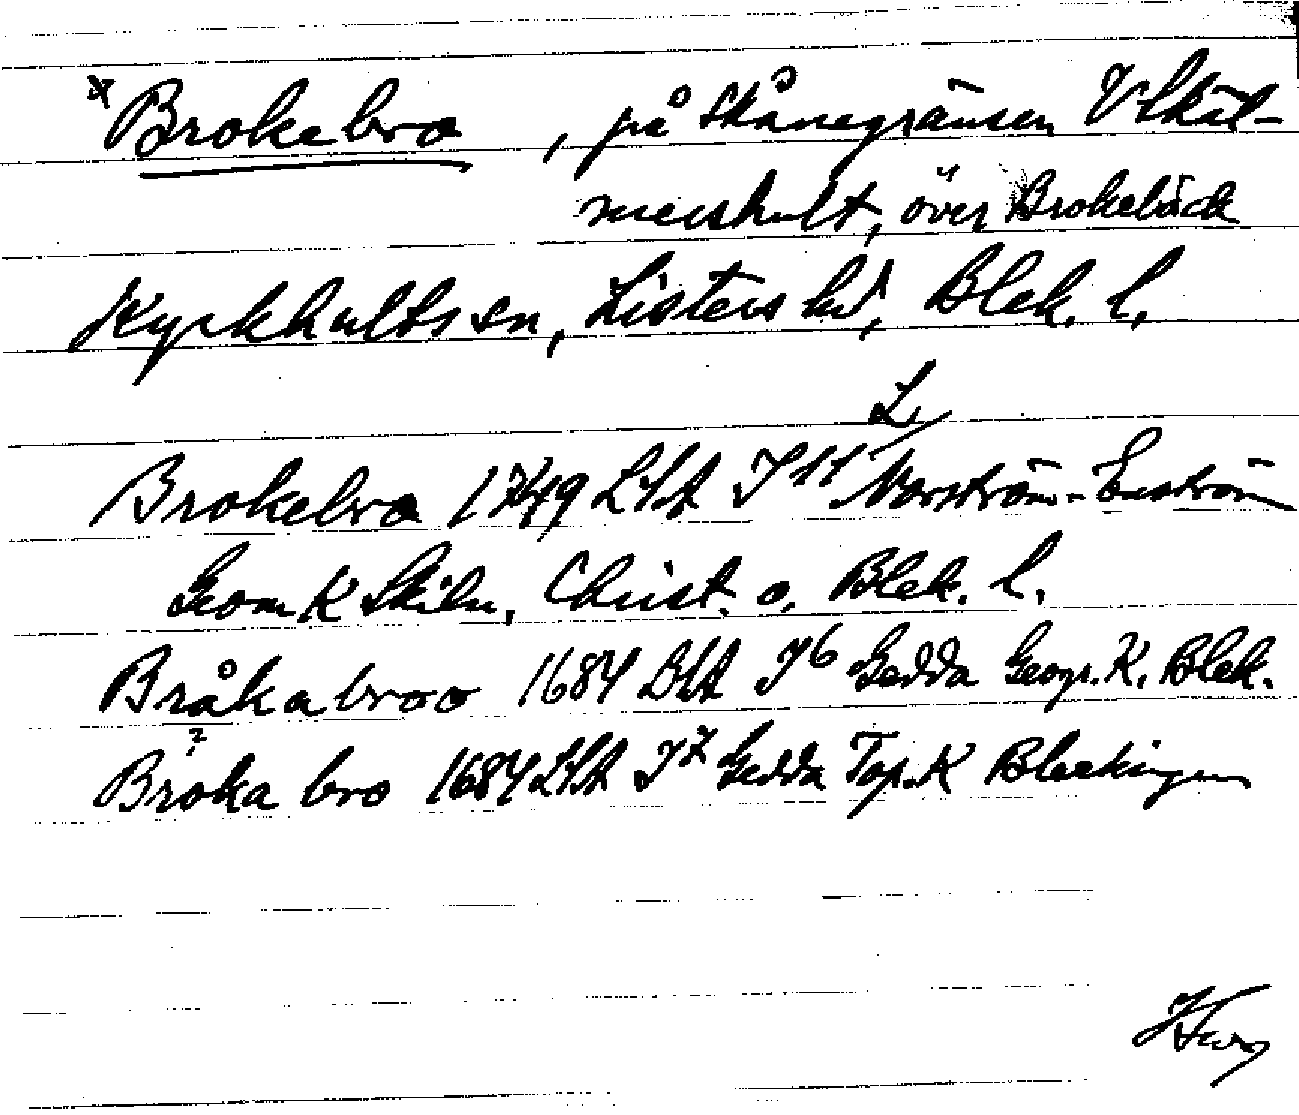 * Brokebro, på Skånegränsen V Kät-
meshult, över Brokebäck
Kyrkhults sn, Listers hd, Blek. l.
L
Brokebro 1749 LSA I 11 Norström - Enström
Geom K Skiln. Christ. o. Blek. l.
Bråkabroo 1684 LSA I 6 Gedda Geogr. K. Blek.
?
Broka bro 1684 LSA I 7 Gedda Top. K Bleckingen